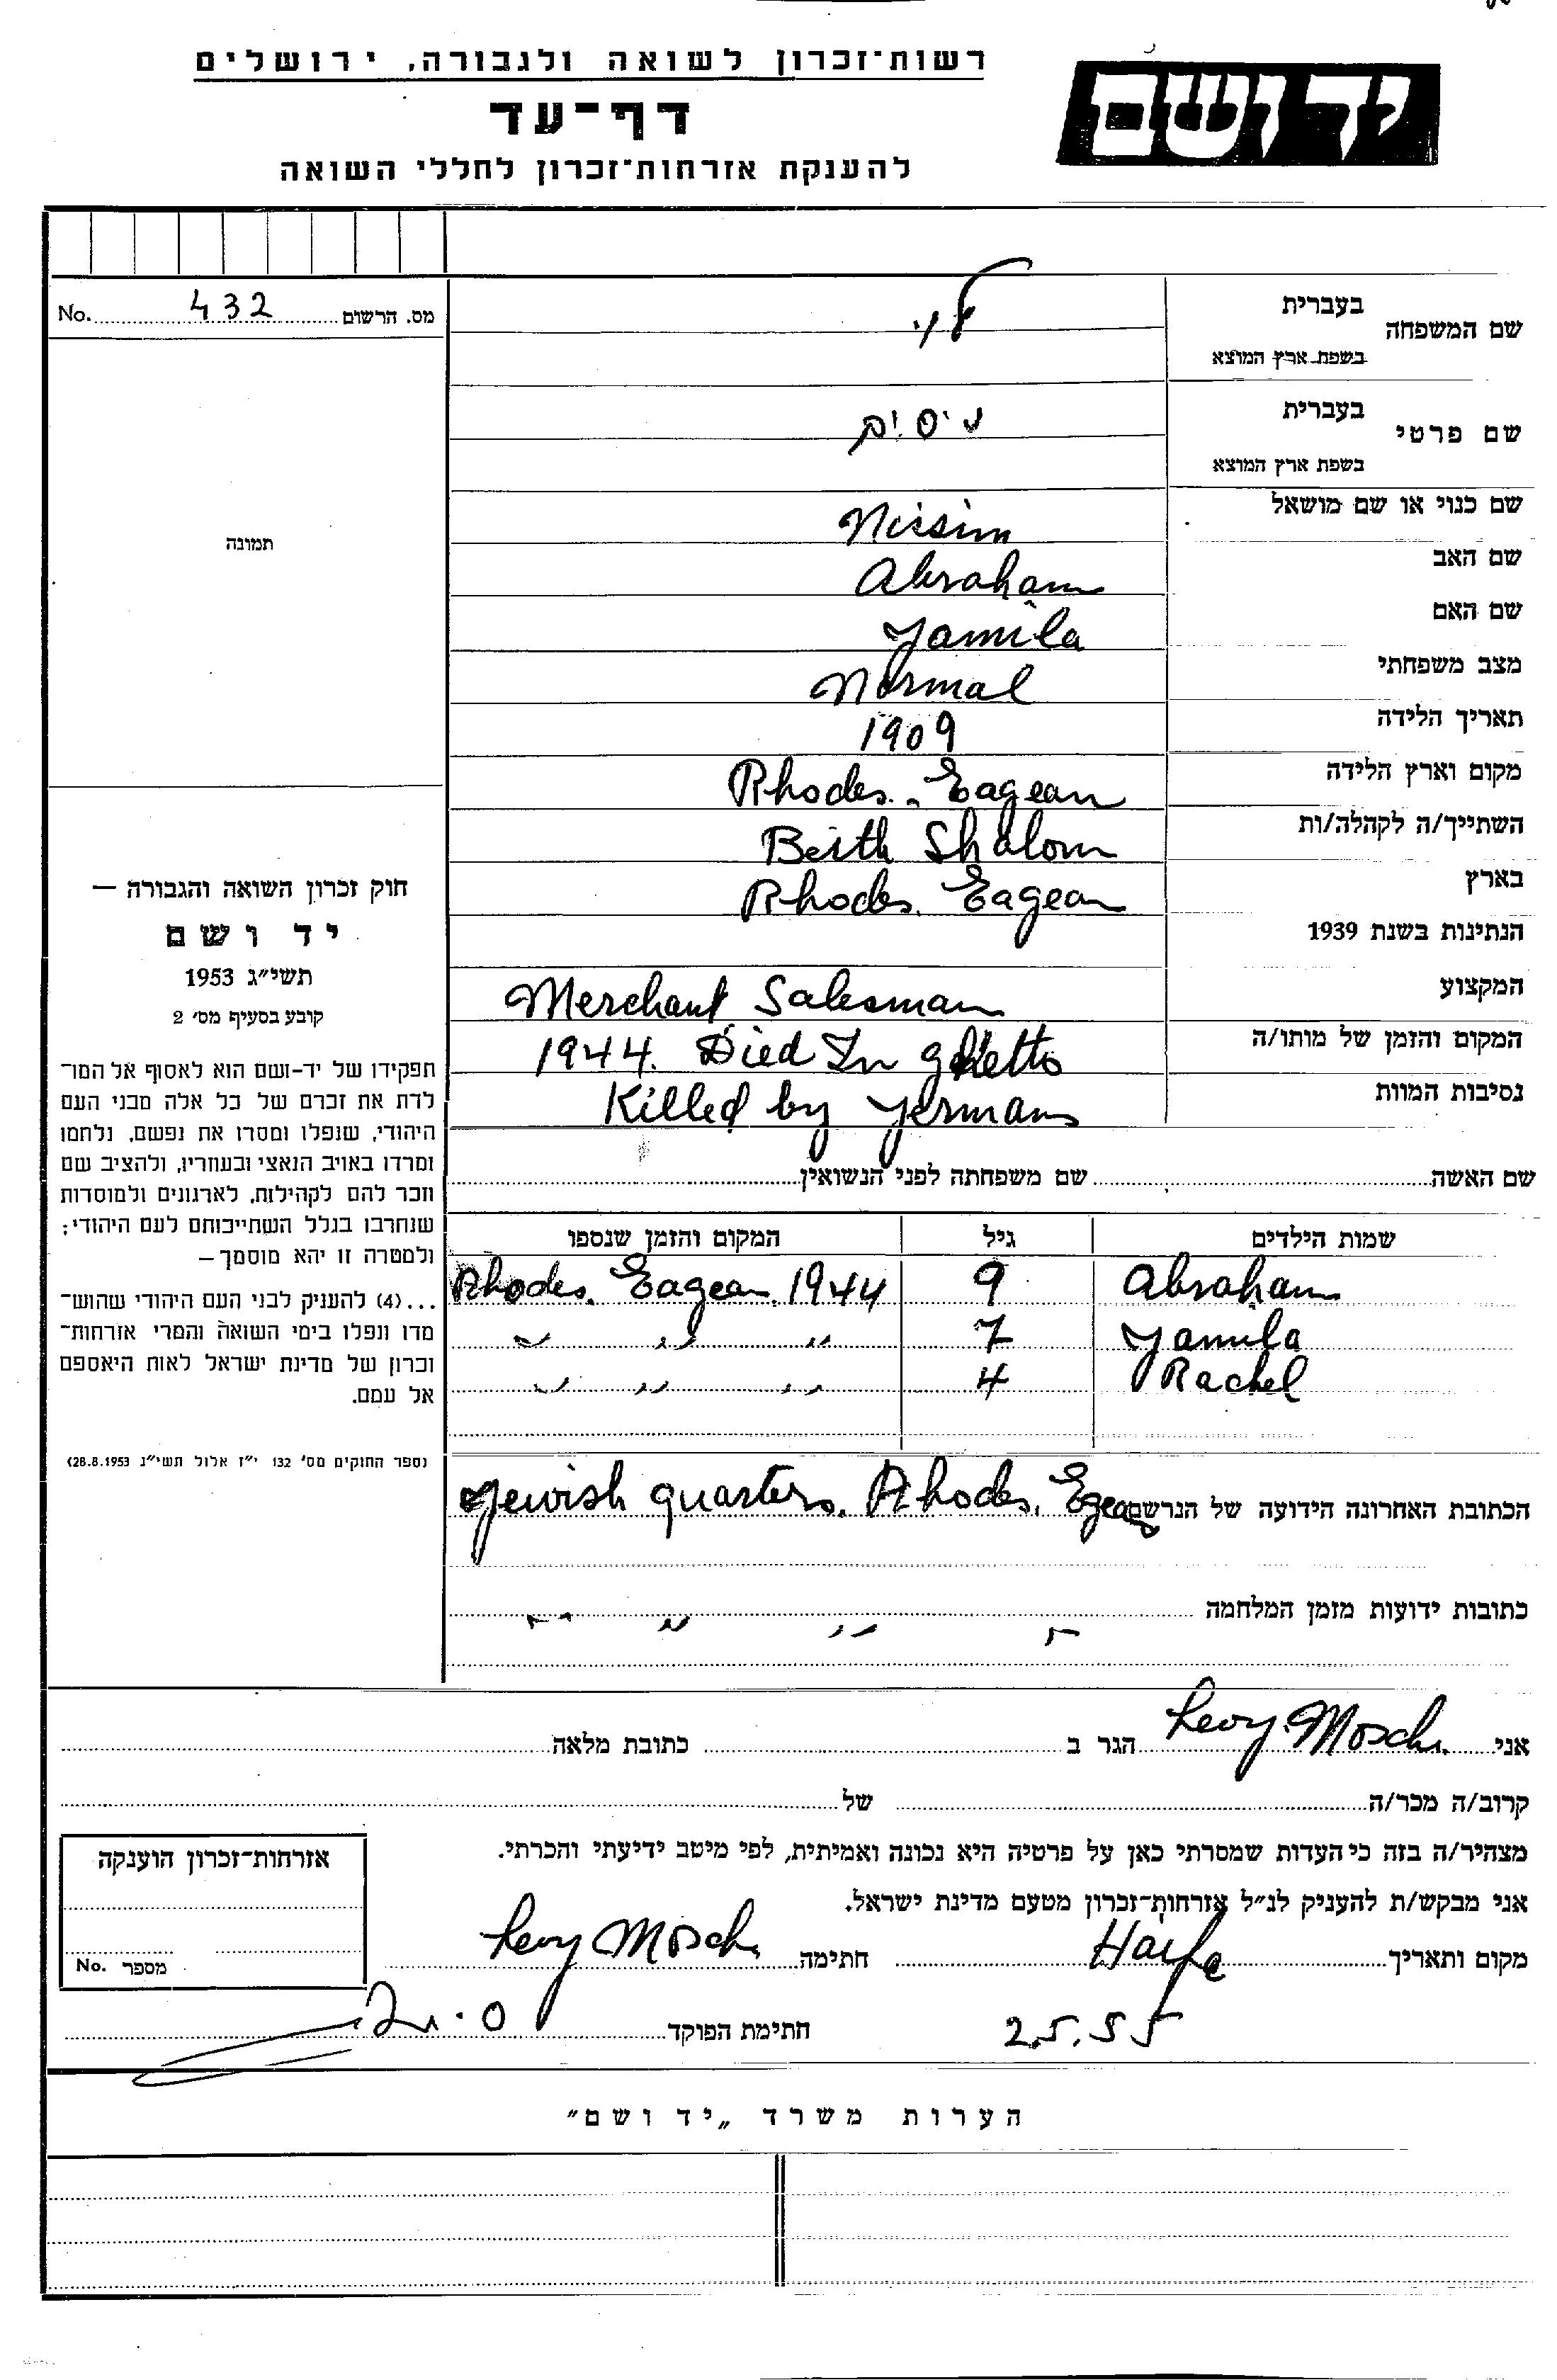 רשות־זכרון לשואה ולגבורה, ירושלים
יד ושם
דף־עד
להענקת אזרחות־זכרון לחללי השואה
מס. הרשום 432 No.
תמונה
חוק זכרון השואה והגבורה —
יד ושם
תשי״ג 1953
קובע בסעיף מס׳ 2
תפקידו של יד-ושם הוא לאסוף אל המו־
לדת את זכרם של כל אלה מבני העם
היהודי, שנפלו ומסרו את נפשם, נלחמו
ומרדו באויב הנאצי ובעוזריו, ולהציב שם
וזכר להם לקהילות, לארגונים ולמוסדות
שנחרבו בגלל השתייכותם לעם היהודי;
ולמטרה זו יהא מוסמך—
...(4) להעניק לבני העם היהודי שהוש־
מדו ונפלו בימי השואה והמרי אזרחות־
זכרון של מדינת ישראל לאות היאספם
אל עמם.
(ספר החוקים מס׳ 132 י״ז אלול תשי״ג 28.8.1953)
שם המשפחה בעברית לוי
בשפת ארץ המוצא
שם פרטי בעברית ניסים
בשפת ארץ המוצא
שם כנוי או שם מושאל Nissim
שם האב Abraham
שם האם Yamila
מצב משפחתי Normal
תאריך הלידה 1909
מקום וארץ הלידה Rhodes. Eagean
השתייך/ה לקהלה/ות Beith Shalom
בארץ Rhodes. Eagean
הנתינות בשנת 1939
המקצוע Merchant Salesman
המקום והזמן של מותו/ה 1944. Died In ghetto
נסיבות המוות Killed by Yermans
שם האשה שם משפחתה לפני הנשואין
שמות הילדים גיל המקום והזמן שנספו
Abraham 9 Rhodes. Eagean. 1944
Yamila 7 〃 〃 〃
Rachel 4 〃 〃 〃
הכתובת האחרונה הידועה של הנרשם Jewish quarters. Rhodes. Egean
כתובות ידועות מזמן המלחמה 〃 〃 〃 〃
אני Levy Mosch. הגר ב כתובת מלאה
קרוב/ה מכר/ה של
מצהיר/ה בזה כי העדות שמסרתי כאן על פרטיה היא נכונה ואמיתית, לפי מיטב ידיעתי והכרתי.
אני מבקש/ת להעניק לנ״ל אזרחות־זכרון מטעם מדינת ישראל.
מקום ותאריך Haifa חתימה Levy Mosch.
25.55
חתימת הפוקד
אזרחות־זכרון הוענקה
מספר No.
הערות משרד „יד ושם״